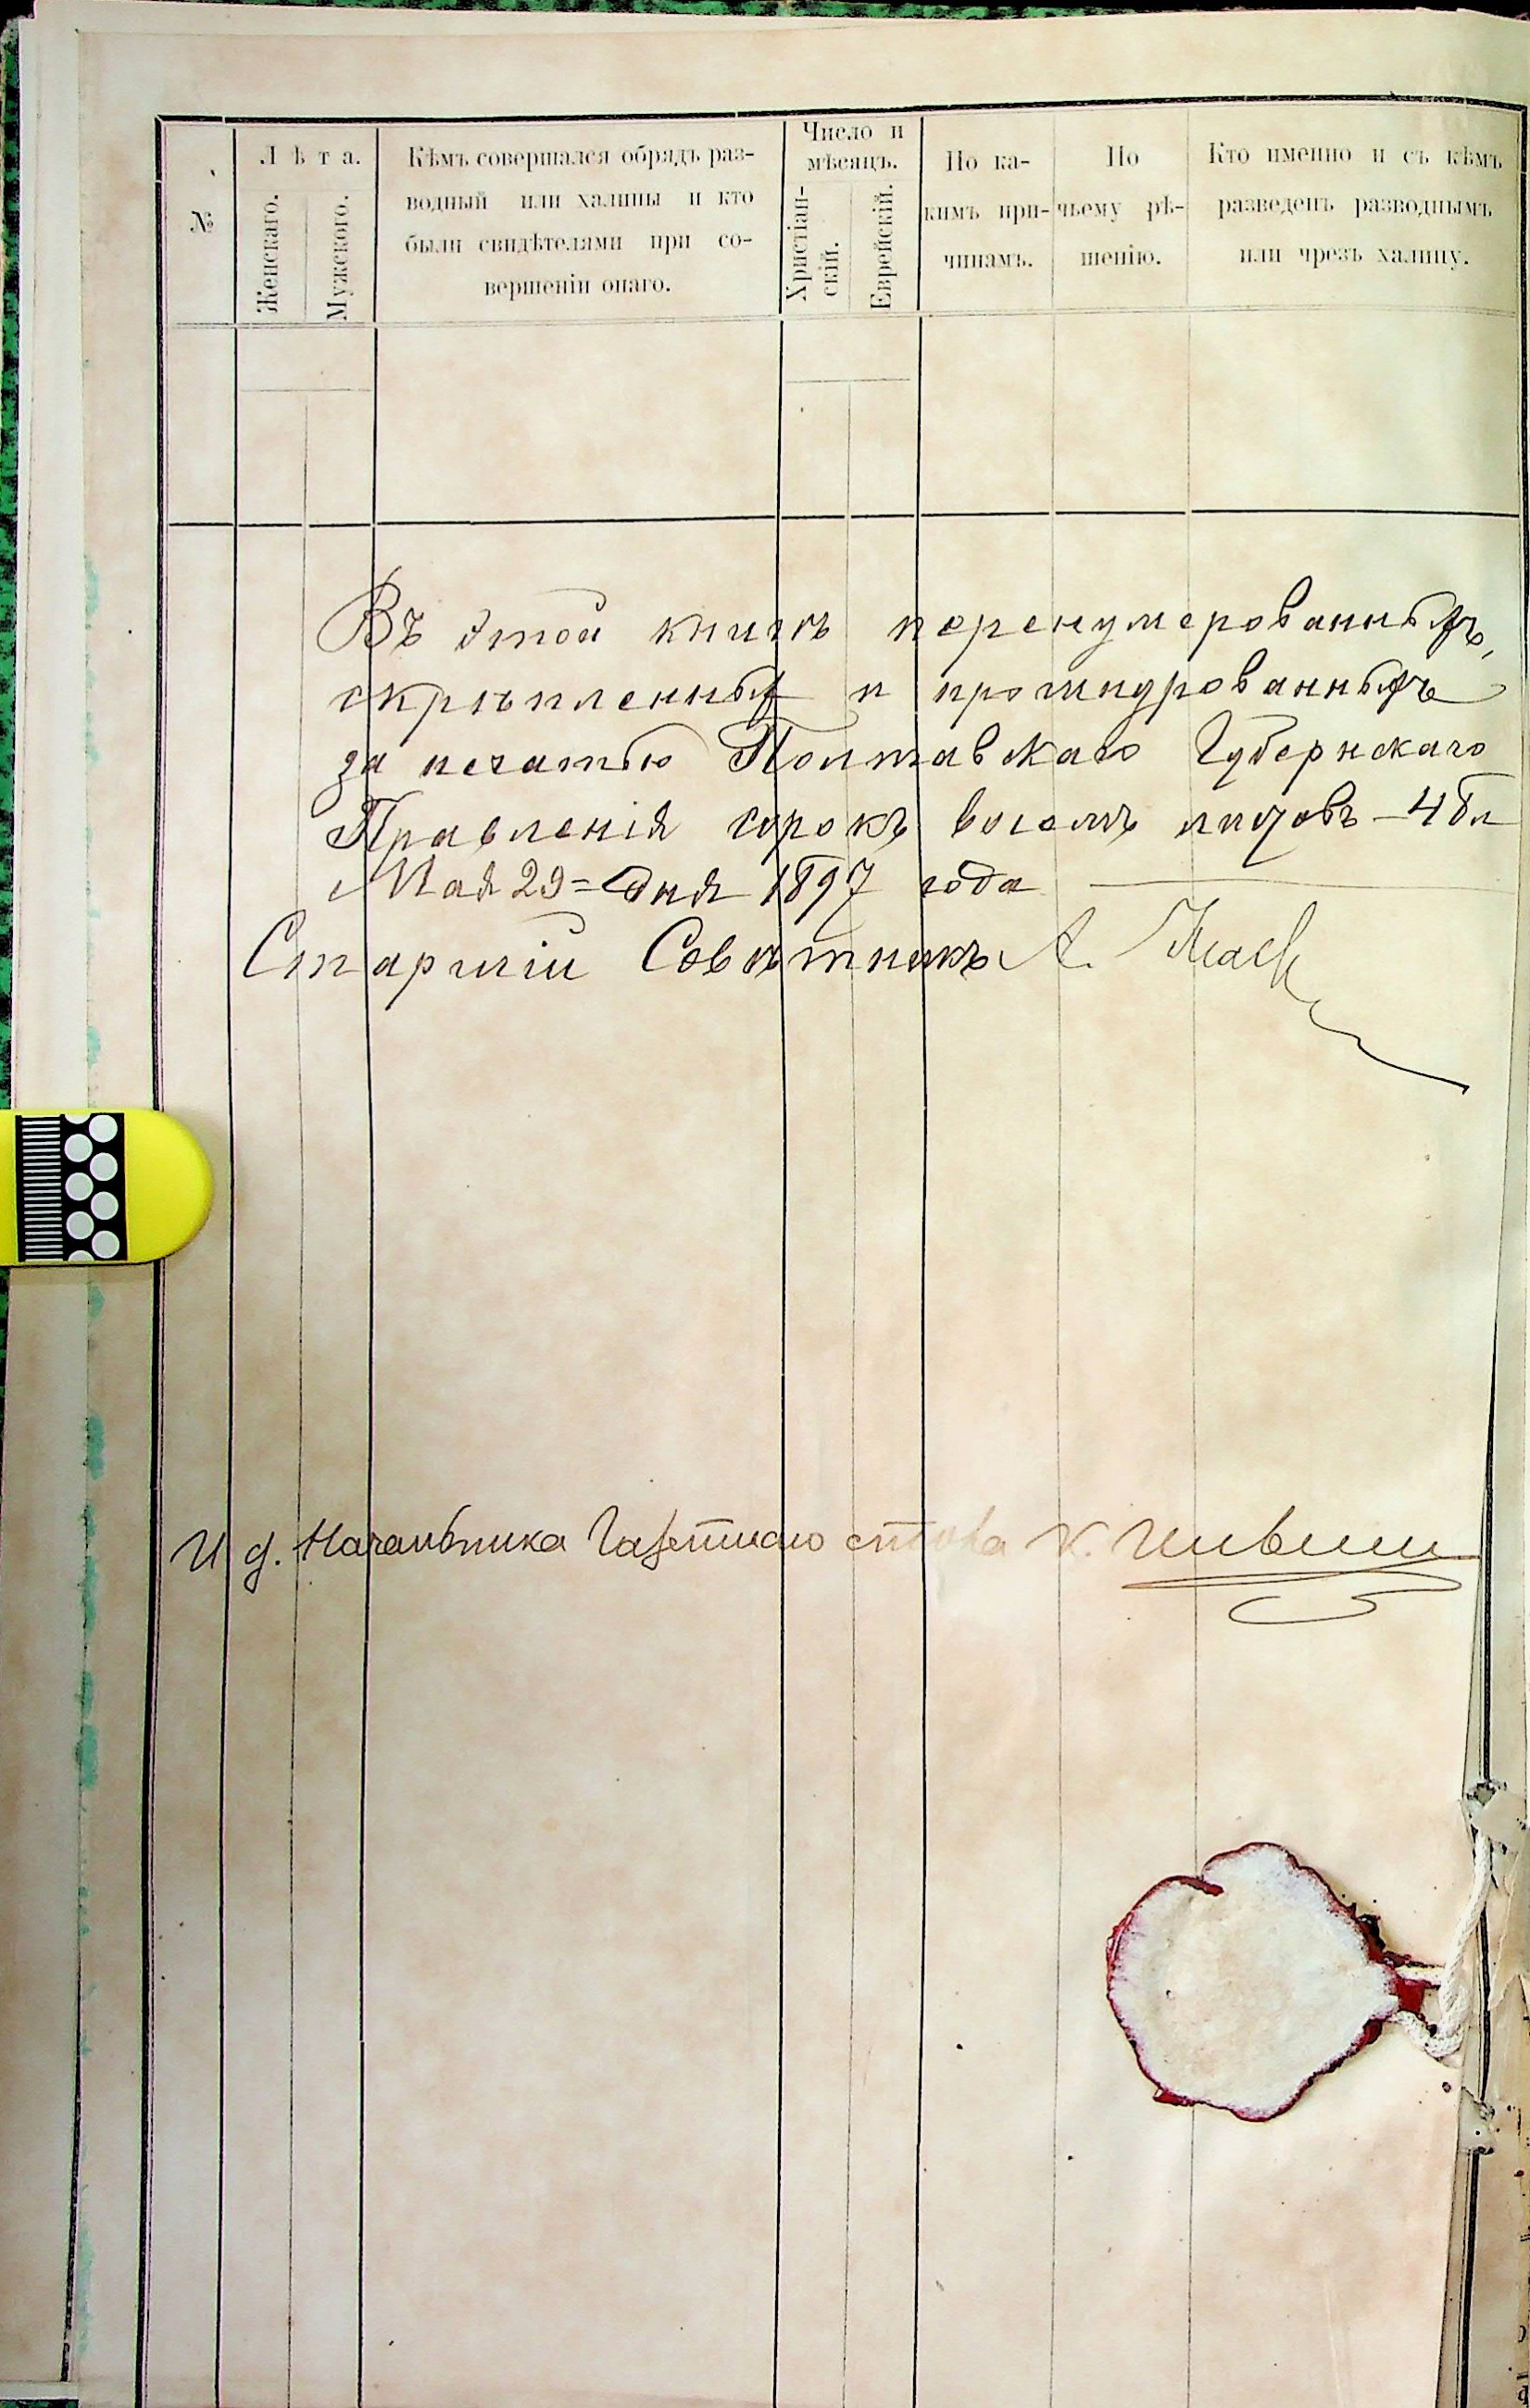 №
Лѣта.
Женскаго.
Мужскаго.
Кѣмъ совершался обрядъ раз-
водный или халицы и кто
были свидѣтелями при со-
вершеніи онаго.
Число и
мѣсяцъ.
Христіан-
скій.
Еврейскій.
По ка-
кимъ при-
чинамъ.
По
чьему рѣ-
шенію.
Кто именно и съ кѣмъ
разведенъ разводнымъ
или чрезъ халицу.
Въ этой книгѣ перенумерованныхъ,
скрѣпленныхъ и прошнурованныхъ
за печатью Полтавскаго Губернскаго
Правленія сорокъ восемь листовъ - 48 л
Мая 29 = дня 1897 года
Старшій Совѣтникъ А.
И д. Начальника Газетнаго стола К.